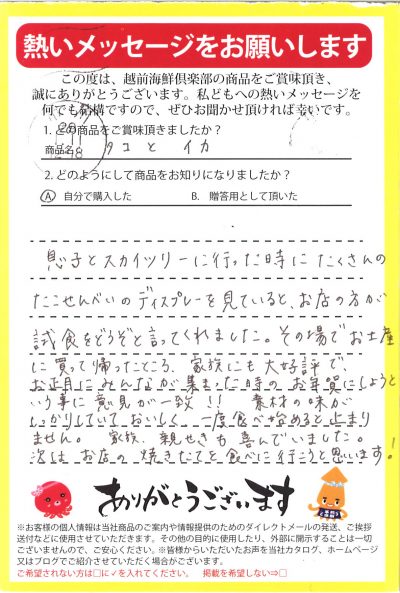 熱いメッセージをお願いします
この度は、越前海鮮倶楽部の商品をご賞味頂き、
誠にありがとうございます。私どもへの熱いメッセージを
何でも結構ですので、ぜひお聞かせ頂ければ幸いです。
1. どの商品をご賞味頂きましたか？
商品名 タコ と イカ
2. どのようにして商品をお知りになりましたか？
A 自分で購入した B. 贈答用として頂いた
息子とスカイツリーに行った時にたくさんの
たこせんべいのディスプレーを見ていると、お店の方が
試食をどうぞと言ってくれました。その場でお土産
に買って帰ったところ、家族にも大好評で
お正月にみんなが集まった時のお年賀にしようと
いう事に意見が一致!! 素材の味が
しっかりしていておいしく、一度食べ始めると止まり
ません。家族、親せきも喜んでいました。
次はお店の焼きたてを食べに行こうと思います!
ありがとうございます
※お客様の個人情報は当社商品のご案内や情報提供のためのダイレクトメールの発送、ご挨拶
送付などに使用させていただきます。その他の目的に使用したり、外部に開示することは一切
ございませんので、ご安心ください。※皆様からいただいたお声を当社カタログ、ホームページ
又はブログでご紹介させていただく場合がございます。
ご希望されない方は□に✓を入れてください。 掲載を希望しない⇒□